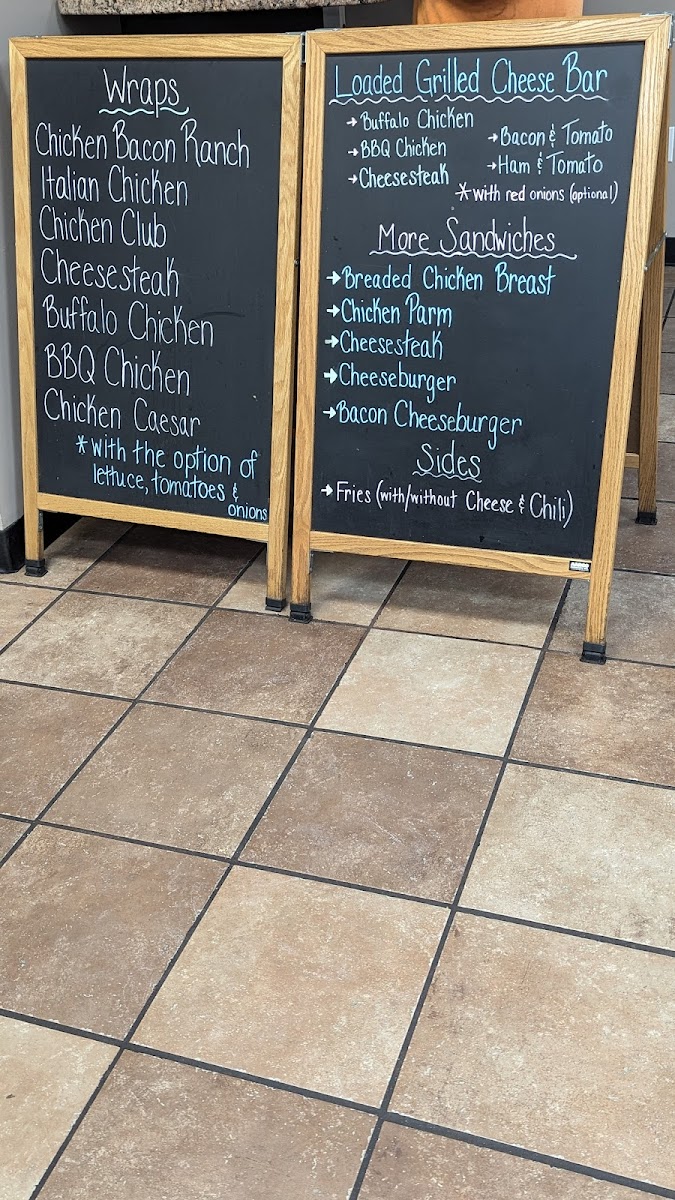 Wraps
Chicken Bacon Ranch
Italian Chicken
Chicken Club
Cheesesteak
Buffalo Chicken
BBQ Chicken
Chicken Caesar
*with the option of
lettuce, tomatoes &
onions
Loaded Grilled Cheese Bar
→Buffalo Chicken
→BBQ Chicken
→Cheesesteak
→Bacon & Tomato
→Ham & Tomato
*with red onions (optional)
More Sandwiches
→Breaded Chicken Breast
→Chicken Parm
→Cheesesteak
→Cheeseburger
→Bacon Cheeseburger
Sides
→Fries (with/without Cheese & Chili)